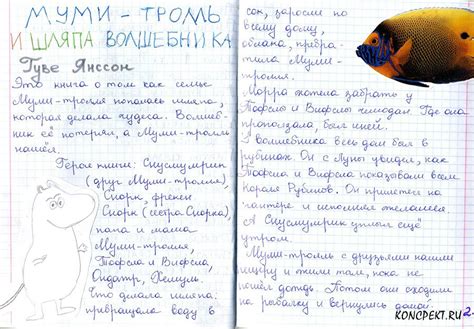 МУМИ - ТРОЛЛЬ
И ШЛЯПА ВОЛШЕБНИКА
Туве Янссон
Это книга о том как семье
Муми-тролля попалась шляпа,
которая делала чудеса. Волшеб-
ник её потерял, а Муми-тролль
нашёл.
Герои книги: Снусмумрик
(друг Муми-тролля),
Снорк, фрекен
Снорк (сестра Снорка),
папа и мама
Муми-тролля,
Тофсла и Вифсла,
Ондатр, Хемуль.
Что делала шляпа:
превращала воду в
сок, заросли по
всему дому,
облака, превра-
тила Муми-
тролля.
Морра хотела забрать у
Тофслы и Вифслы чемодан. Где она
проползала, был иней.
У волшебника весь дом был в
рубинах. Он с Луны увидел, как
Тофсла и Вифсла показывали всем
Короля Рубинов. Он прилетел на
пантере и исполнил желания.
А Снусмумрик ушёл ещё
утром.
Муми-тролль с друзьями нашли
пещеру и жили там, пока не
пошёл дождь. Потом они сходили
на рыбалку и вернулись домой.
КОНСПЕКТ.RU 2